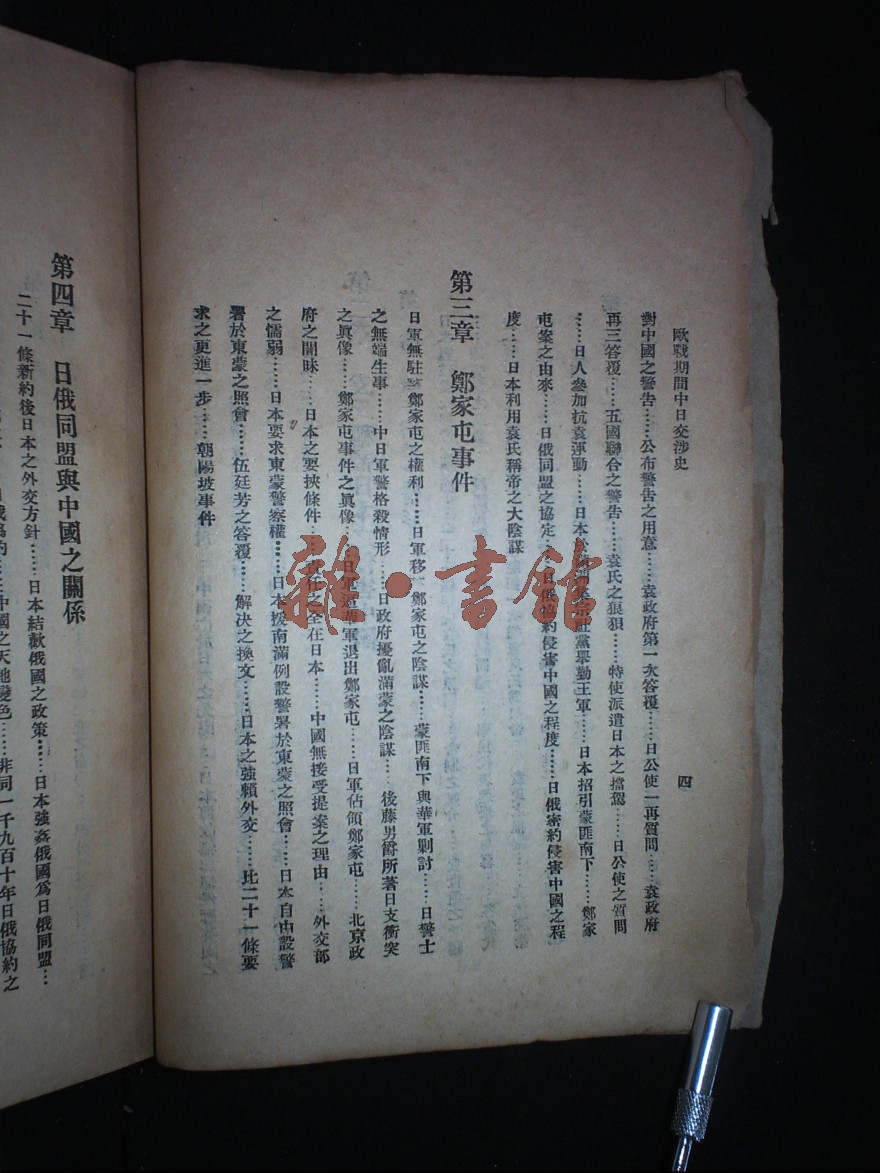 歐戰期間中日交涉史
四
對中國之警告……公布警告之用意……袁政府第一次答覆……日公使一再質問……袁政府
再三答覆……五國聯合之警告……袁氏之狼狽……特使派遣日本之擋駕……日公使之質問
……日人參加抗袁運動……日本 宗社黨舉勤王軍……日本招引蒙匪南下……鄭家
屯案之由來……日俄同盟之協定……日俄協約侵害中國之程度……日俄密約侵害中國之程
度……日本利用袁氏稱帝之大陰謀
第三章 鄭家屯事件
日軍無駐 鄭家屯之權利……日軍移 鄭家屯之陰謀……蒙匪南下與華軍剿討……日警士
之無端生事……中日軍警格殺情形……日政府擾亂滿蒙之陰謀……後藤男爵所著日支衝突
之眞像……鄭家屯事件之眞像……日軍逼華軍退出鄭家屯……日軍佔領鄭家屯……北京政
府之闇昧……日本之要挾條件……責任之全在日本……中國無接受提案之理由……外交部
之懦弱……日本要求東蒙警察權……日本援南滿例設警署於東蒙之照會……日本自由設警
署於東蒙之照會……伍廷芳之答覆……解決之換文……日本之強賴外交……比二十一條要
求之更進一步……朝陽坡事件
第四章 日俄同盟與中國之關係
二十一條新約後日本之外交方針……日本結歡俄國之政策……日本強姦俄國爲日俄同盟…
中國之天地變色……非同一千九百十年日俄協約之
雜·書館